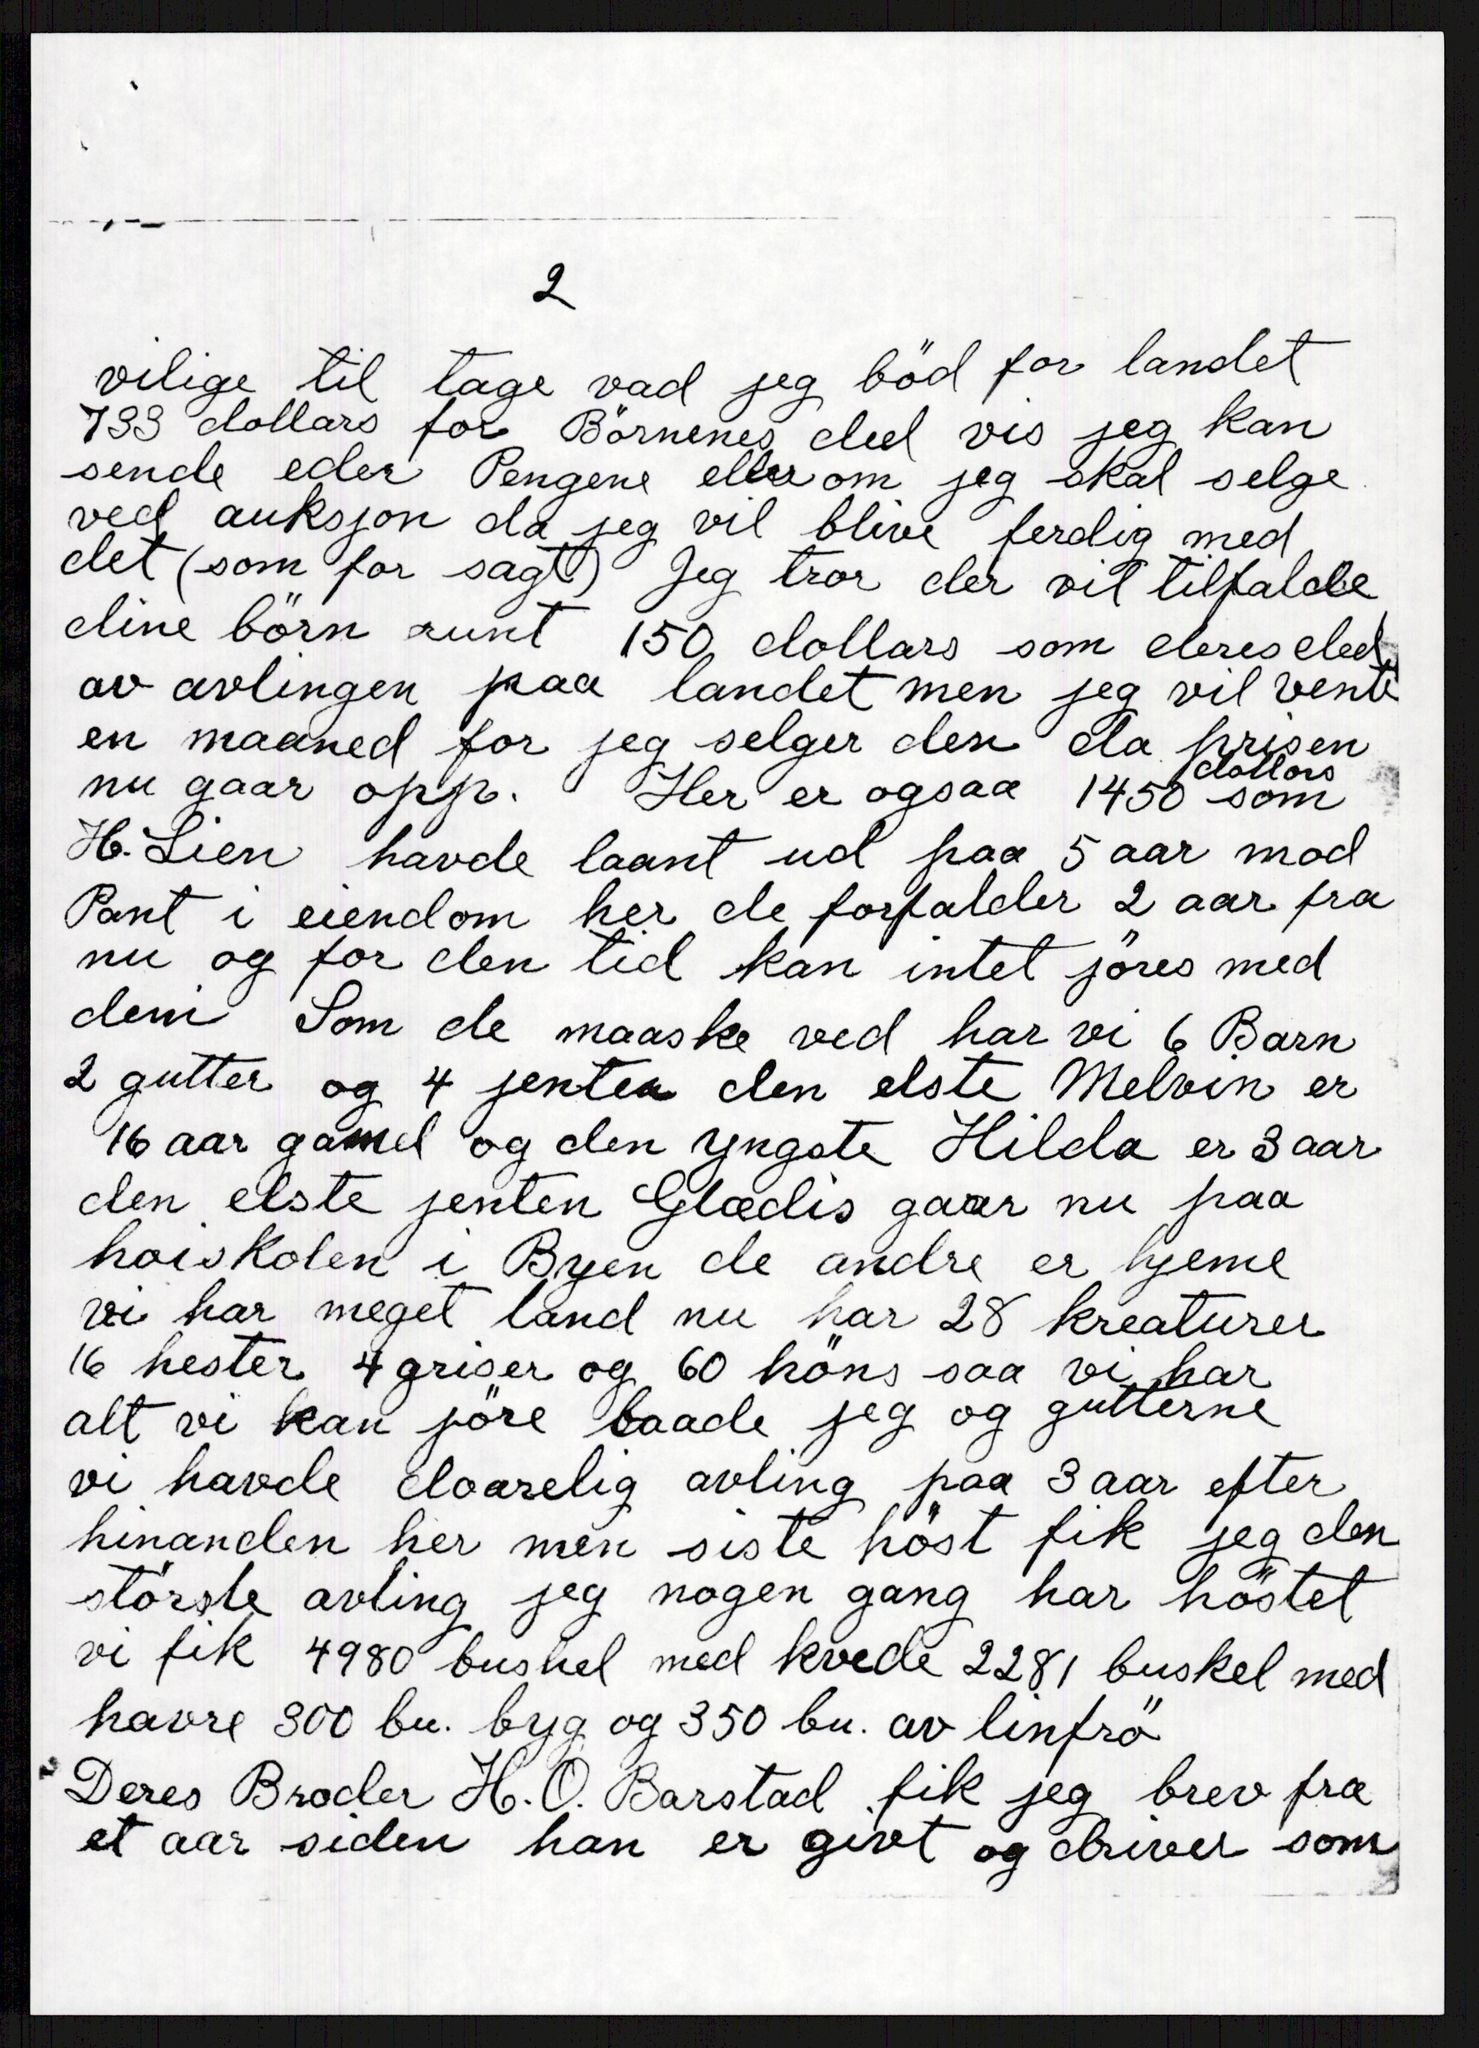 2
vilige til tage vad jeg böd for landet
733 dollars for Börnenes del vis jeg kan
sende eder Pengene eller om jeg skal selge
ved auksjon da jeg vil blive ferdig med
det (som for sagt) Jeg tror der vil tilfalde
dine börn runt 150 dollars som deres del
av avlingen paa landet men jeg vil vente
en maaned for jeg selger den da prisen
nu gaar opp. Her er ogsaa 1450 dollars som
H. Lien havde laant ud paa 5 aar mod
Pant i eiendom her de forfalder 2 aar fra
nu og for den tid kan intet jöres med
dem Som de maaske ved har vi 6 Barn
2 gutter og 4 jenter den elste Melvin er
16 aar gamel og den yngste Hilda er 3 aar
den elste jenten Gladis gaar nu paa
hoiskolen i Byen de andre er hjeme
vi har meget land nu har 28 kreaturer
16 hester 4 griser og 60 höns saa vi har
alt vi kan jöre baade jeg og gutterne
vi havde daarelig avling paa 3 aar efter
hinanden her men siste höst fik jeg den
störste avling jeg nogen gang har höstet
vi fik 4980 bushel med kvede 2281 buskel med
havre 300 bu. byg og 350 bu. av linfrö
Deres Broder H. O. Barstad fik jeg brev fra
et aar siden han er givt og driver som